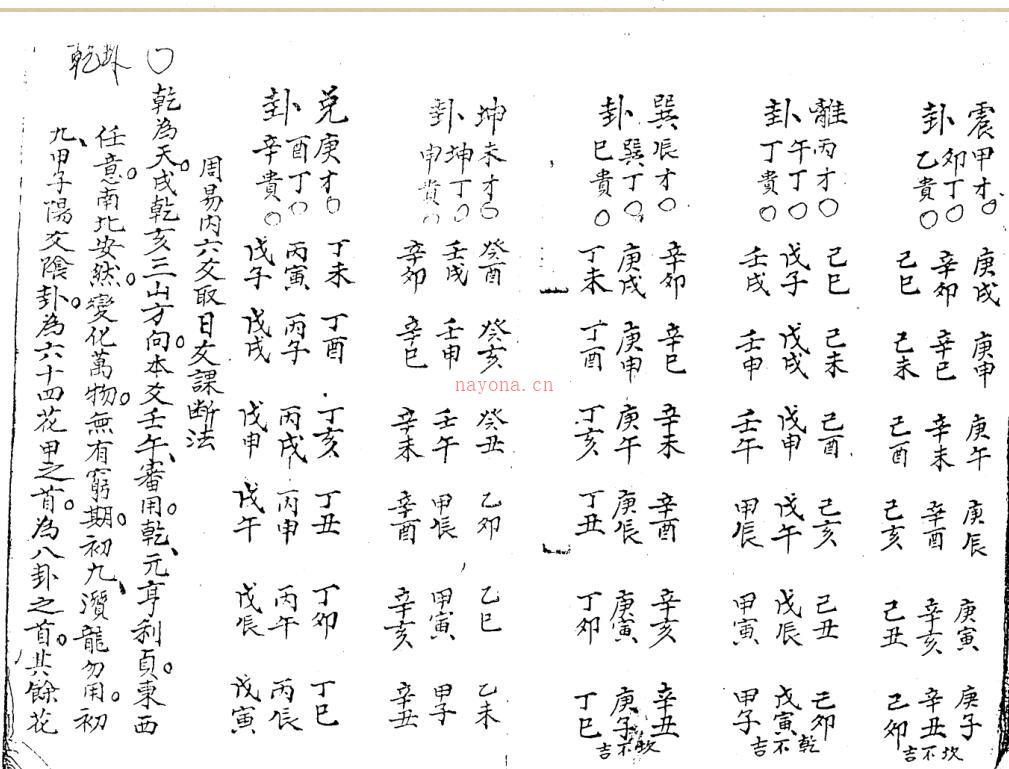 震甲才○庚戌庚申庚午庚辰庚寅庚子
卯丁○辛卯辛巳辛未辛酉辛亥辛丑坎不吉
卦乙貴○己巳己未己酉己亥己丑己卯
離丙才○己巳己未己酉己亥己丑己卯
午丁○戊子戊戌戊申戊午戊辰戊寅乾不吉
卦丁貴○壬戌壬申壬午甲辰甲寅甲子
巽辰才○辛卯辛巳辛未辛酉辛亥辛丑
巽丁○庚戌庚申庚午庚辰庚寅庚子坎不吉
卦巳貴○丁未丁酉丁亥丁丑丁卯丁巳
坤未才○癸酉癸亥癸丑乙卯乙巳乙未
坤丁○壬戌壬申壬午甲辰甲寅甲子
卦申貴○辛卯辛巳辛未辛酉辛亥辛丑
兌庚才○丁未丁酉丁亥丁丑丁卯丁巳
酉丁○丙寅丙子丙戌丙申丙午丙辰
卦辛貴○戊子戊戌戊申戊午戊辰戊寅
周易內六爻取日爻課断法
○乾為天。戌乾亥三山方向。本爻壬午、審用。乾、元亨利貞。東西
乾卦
任意。南北安然。變化萬物。無有窮期。初九、潛龍勿用。初
九、甲子陽爻陰卦。為六十四花甲之首。為八卦之首。其餘花
nayona.cn